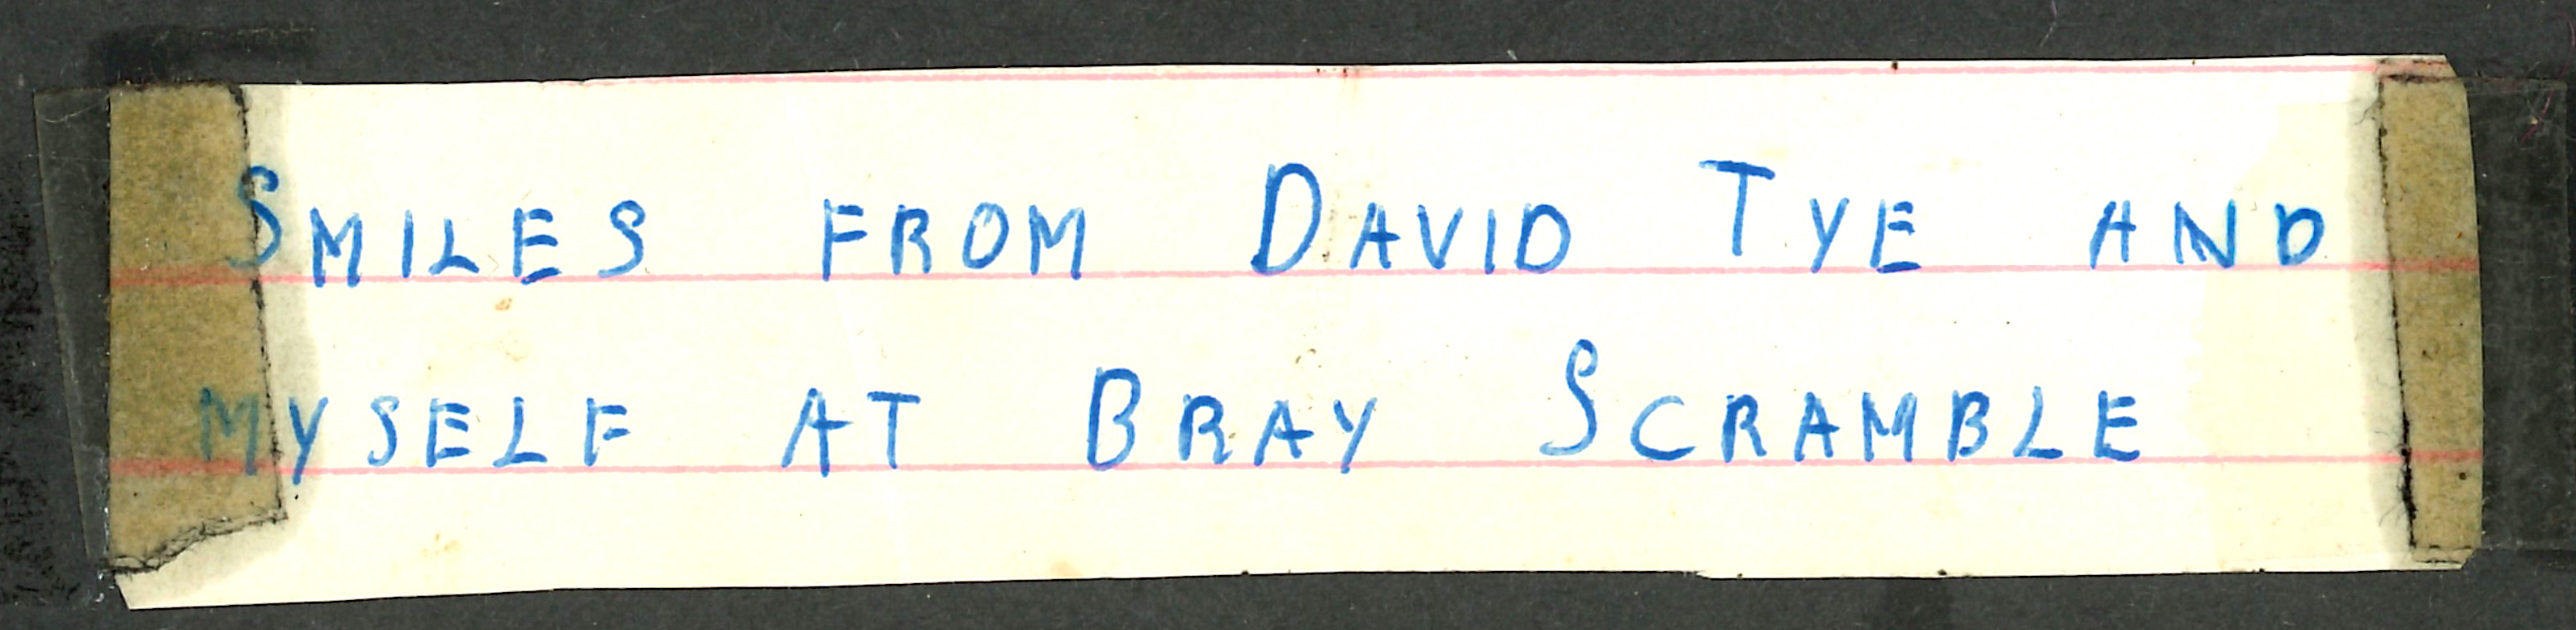 SMILES FROM DAVID TYE AND
MYSELF AT BRAY SCRAMBLE